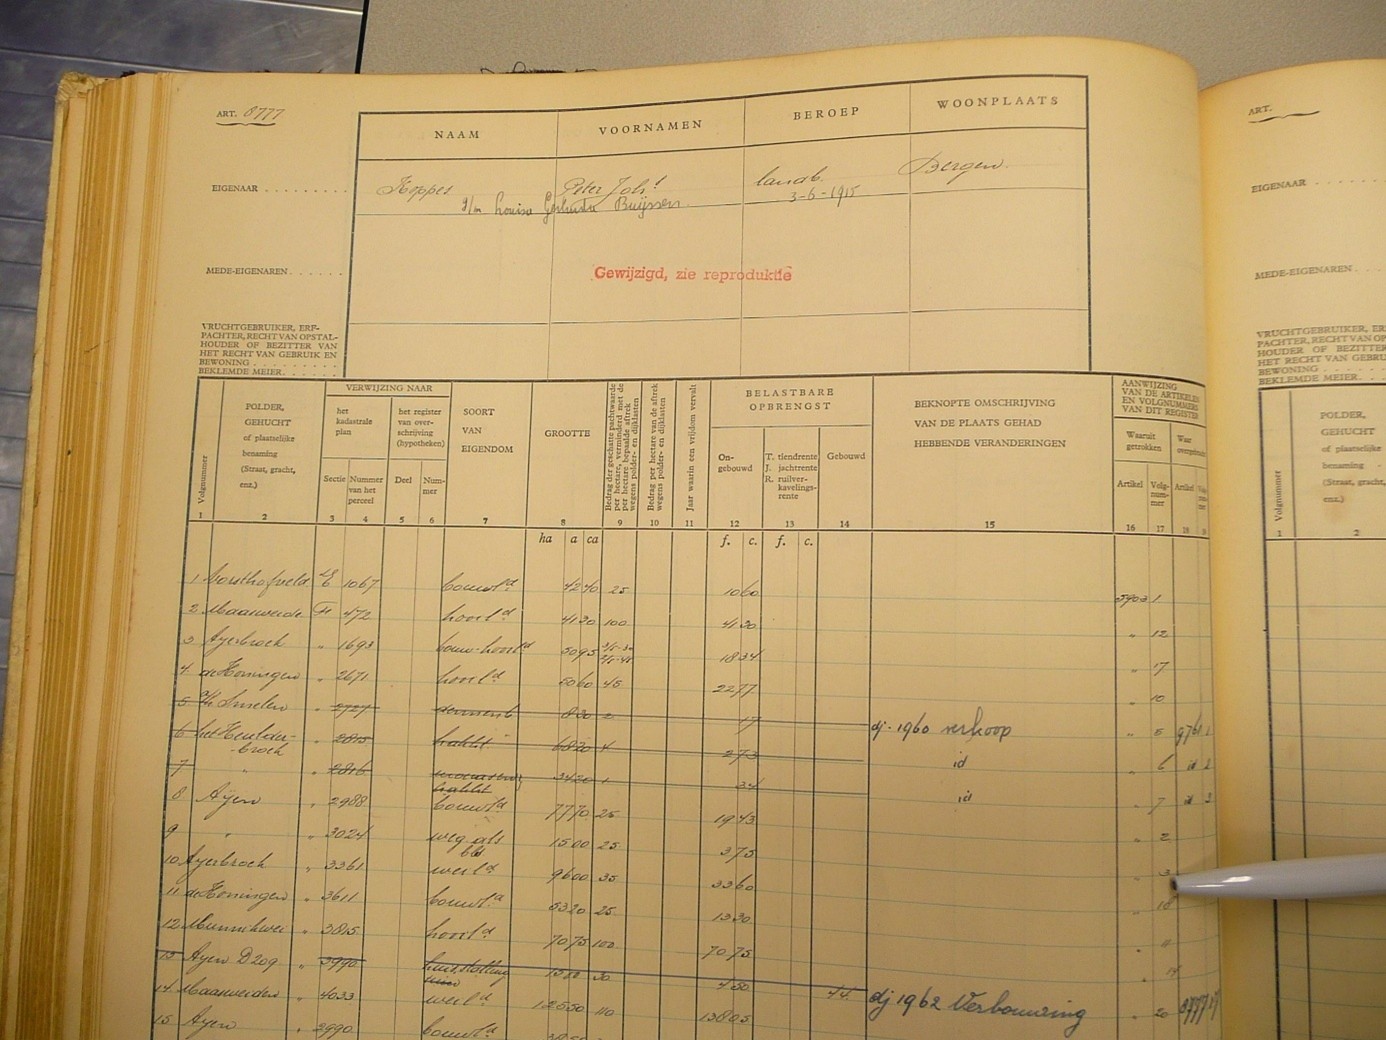 ART. 8777
NAAM VOORNAMEN BEROEP WOONPLAATS
EIGENAAR . . . . . . . . Koppes Peter Joh.s landb. Bergen.
g/m Louisa Buijssen. 3-6-1915
MEDE-EIGENAREN. . . . . .
Gewijzigd, zie reproduktie
VRUCHTGEBRUIKER, ERF-
PACHTER, RECHT VAN OPSTAL-
HOUDER OF BEZITTER VAN
HET RECHT VAN GEBRUIK EN
BEWONING . . . . . . . . .
BEKLEMDE MEIER. . . . . .
Volgnummer
POLDER,
GEHUCHT
of plaatselijke
benaming
(Straat, gracht,
enz.)
VERWIJZING NAAR
het
kadastrale
plan
Sectie
Nummer
van het
perceel
het register
van over-
schrijving
(hypotheken)
Deel
Num-
mer
SOORT
VAN
EIGENDOM
GROOTTE
Bedrag der geschatte pachtwaarde
per hectare, verminderd met de
per hectare bepaalde aftrek
wegens polder- en dijklasten
Bedrag per hectare van de aftrek
wegens polder- en dijklasten
Jaar waarin een vrijdom vervalt
BELASTBARE
OPBRENGST
On-
gebouwd
T. tiendrente
J. jachtrente
R. ruilver-
kavelings-
rente
Gebouwd
BEKNOPTE OMSCHRIJVING
VAN DE PLAATS GEHAD
HEBBENDE VERANDERINGEN
AANWIJZING
VAN DE ARTIKELEN
EN VOLGNUMMERS
VAN DIT REGISTER
Waaruit
getrokken
Artikel
Volg-
num-
mer
Waar
Artikel
1 2 3 4 5 6 7 8 9 10 11 12 13 14 15 16 17 18
ha a ca f. c. f. c.
1 E 1067 bouwl.d 42 40 25 10 60 5903 1
2 Maasweide F 472 hooil.d 41 30 100 41 30 " 12
3 Ayerbroek " 1693 bouw-hooil.d 50 95 18 34 " 17
4 de Koningen " 2671 hooil.d 50 60 45 22 77 " 10
5 " 2727 8 30 2 17 dj. 1960 verkoop " 5 9761 1
6 het Heulder-
broek " 2815 hakht 68 20 4 2 73 id " 6 id 2
7 " " 2816 34 20 1 34 id " 7 id 3
hakht
8 Ayen " 2988 bouwl.d 77 70 25 19 43 " 2
9 " " 3024 weg als 15 00 25 3 75 " 3
10 Ayerbroek " 3361 weil.d 96 00 35 33 60
11 de Koningen " 3611 bouwl.d 53 20 25 13 30
12 " 3815 hooil.d 70 75 100 70 75
13 Ayen D209 " 3990 30 4 50 44 dj 1962 Verbouwing
14 Maasweiden " 4033 weil.d 1 25 50 110 138 05 " 20 8777 17
15 Ayen " 2990 bouwl.d
ART.
EIGENAAR . . . . .
MEDE-EIGENAREN . . .
VRUCHTGEBRUIKER, ER
PACHTER, RECHT VAN OP
HOUDER OF BEZITTER
HET RECHT VAN GEBRU
BEWONING . . . .
BEKLEMDE MEIER. . .
Volgnummer
POLDER,
GEHUCHT
of plaatselijke
benaming
(Straat, gracht,
enz.)
1 2